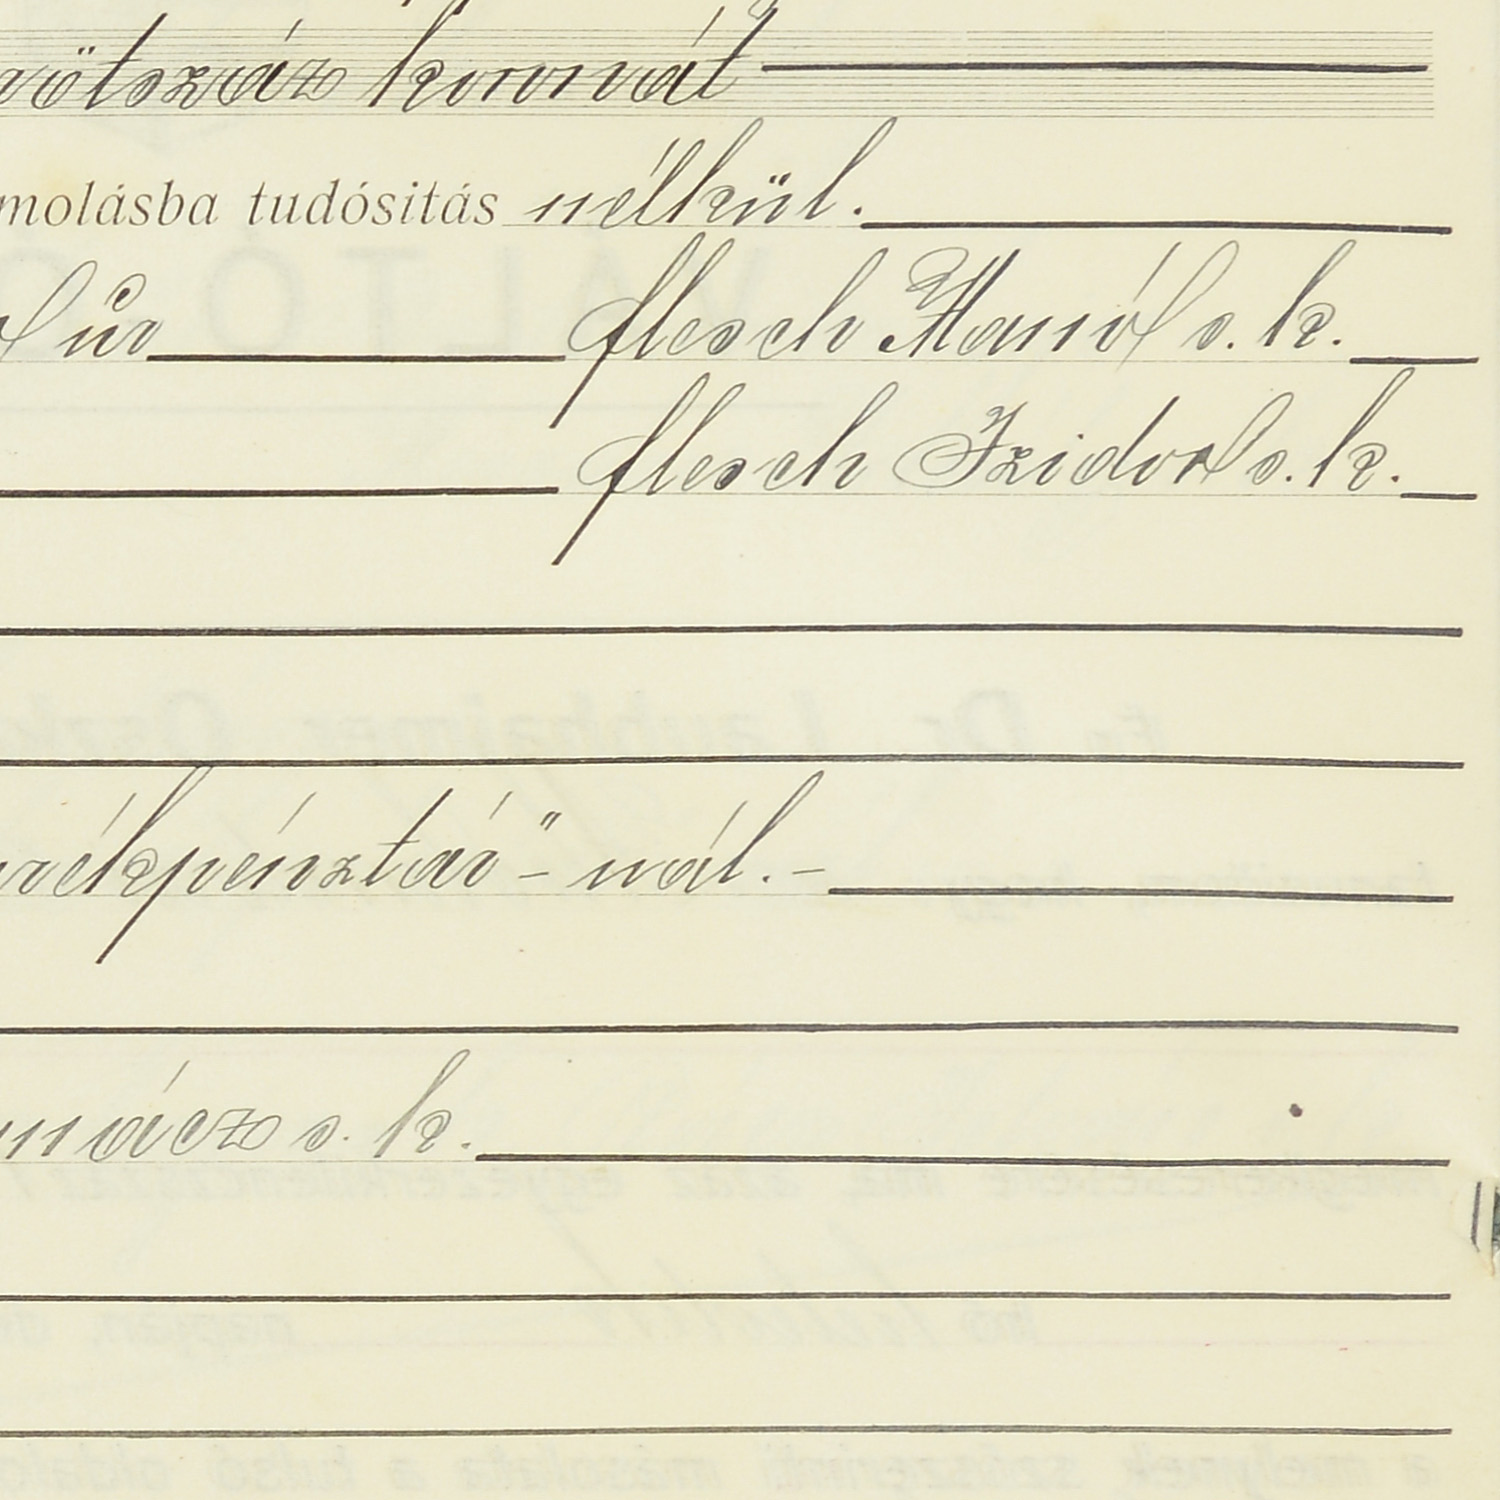 ötszáz koronát
molásba tudósitás nélkül.
flesch Manó s. k.
flesch Izidor s. k.
rékpénztár"- nál.-
nácz s. k.